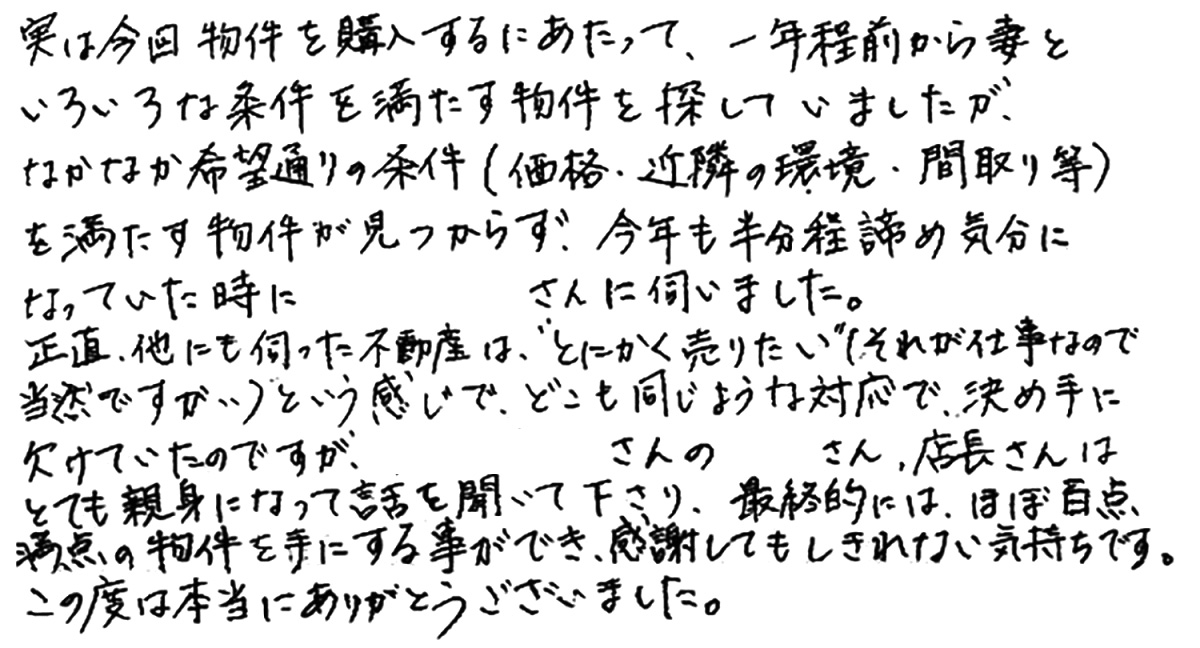 実は今回物件を購入するにあたって、一年程前から妻と
いろいろな条件を満たす物件を探していましたが、
なかなか希望通りの条件(価格・近隣の環境・間取り等)
を満たす物件が見つからず、今年も半分程諦め気分に
なっていた時に さんに伺いました。
正直、他にも伺った不動産は、"とにかく売りたい"(それが仕事なので
当然ですが…)という感じで、どこも同じような対応で、決め手に
欠けていたのですが、 さんの さん、店長さんは
とても親身になって話を聞いて下さり、最終的には、ほぼ百点
満点の物件を手にする事ができ、感謝してもしきれない気持ちです。
この度は本当にありがとうございました。